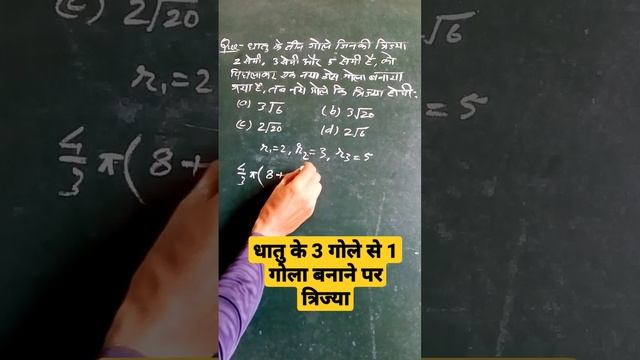 Que- धातु के तीन गोले जिनकी त्रिज्या
2 सेमी, 3 सेमी और 5 सेमी है, को
पिघलाकर एक नया ठोस गोला बनाया
गया है, तब नये गोले कि त्रिज्या होगी:
(a) 3√6 (b) 3√20
(c) 2√20 (d) 2√6
r₁=2, r₂=3, r₃=5
4/3 π(8+
धातु के 3 गोले से 1
गोला बनाने पर
त्रिज्या
(c) 2√20
r₁=2
4/3 π(